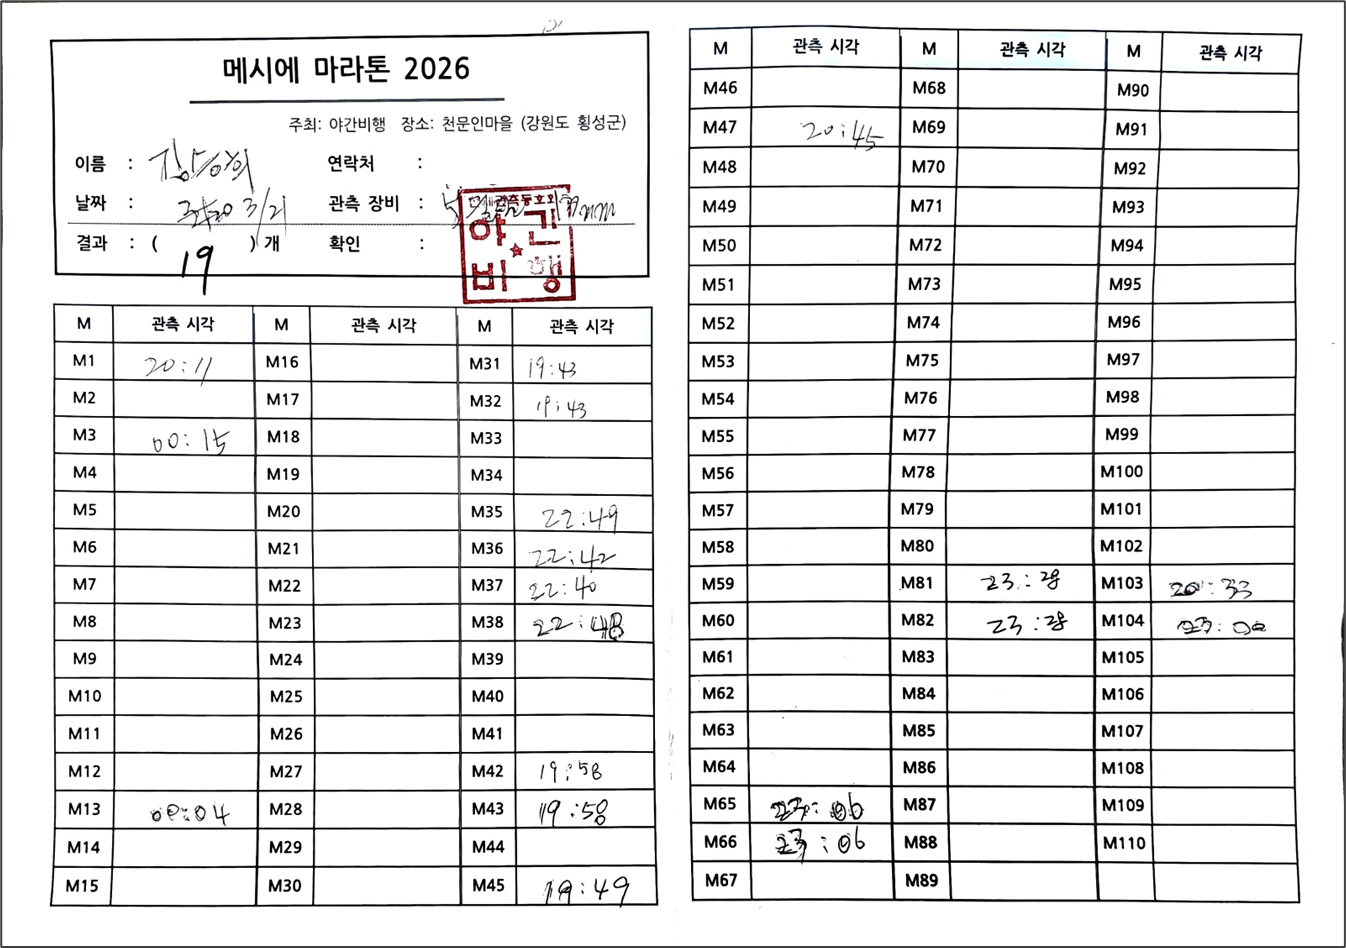 메시에 마라톤 2026
주최: 야간비행 장소: 천문인마을 (강원도 횡성군)
이름 : 연락처 :
날짜 : 3/21 관측 장비 : mm
결과 : ( 19 ) 개 확인 :
관측동호회
야간
비행
M 관측 시각 M 관측 시각 M 관측 시각
M1 20:11 M16 M31 19:43
M2 M17 M32 19:43
M3 00:15 M18 M33
M4 M19 M34
M5 M20 M35 22:49
M6 M21 M36 22:42
M7 M22 M37 22:40
M8 M23 M38 22:48
M9 M24 M39
M10 M25 M40
M11 M26 M41
M12 M27 M42 19:58
M13 00:04 M28 M43 19:58
M14 M29 M44
M15 M30 M45 19:49
M 관측 시각 M 관측 시각 M 관측 시각
M46 M68 M90
M47 20:45 M69 M91
M48 M70 M92
M49 M71 M93
M50 M72 M94
M51 M73 M95
M52 M74 M96
M53 M75 M97
M54 M76 M98
M55 M77 M99
M56 M78 M100
M57 M79 M101
M58 M80 M102
M59 M81 23:28 M103 20:33
M60 M82 23:28 M104
M61 M83 M105
M62 M84 M106
M63 M85 M107
M64 M86 M108
M65 23:06 M87 M109
M66 23:06 M88 M110
M67 M89